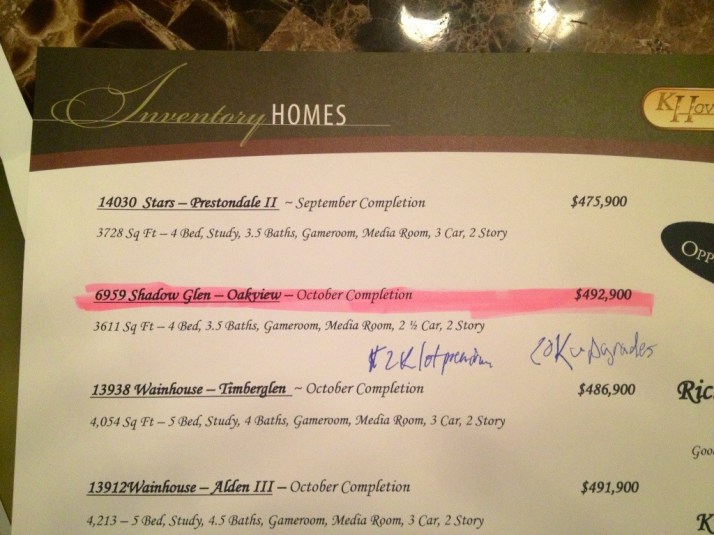 Inventory HOMES
K Hov
14030 Stars – Prestondale II ~ September Completion $475,900
3728 Sq Ft – 4 Bed, Study, 3.5 Baths, Gameroom, Media Room, 3 Car, 2 Story
OPP
6959 Shadow Glen – Oakview – October Completion $492,900
3611 Sq Ft – 4 Bed, 3.5 Baths, Gameroom, Media Room, 2 ½ Car, 2 Story
$2K lot premium 20K upgrades
13938 Wainhouse – Timberglen ~ October Completion $486,900
Ric
4,054 Sq Ft – 5 Bed, Study, 4 Baths, Gameroom, Media Room, 3 Car, 2 Story
Goo
13912Wainhouse – Alden III – October Completion $491,900
4,213 – 5 Bed, Study, 4.5 Baths, Gameroom, Media Room, 3 Car, 2 Story
K